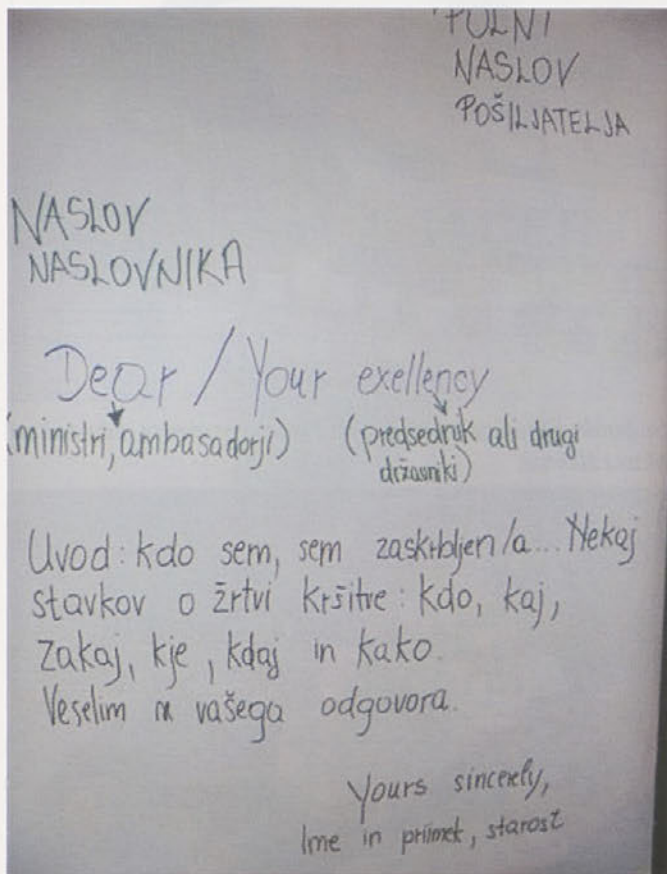 POLNI
NASLOV
POŠILJATELJA
NASLOV
NASLOVNIKA
Dear / Your exellency
(ministri, ambasadorji) (predsednik ali drugi
državniki)
Uvod: kdo sem, sem zaskrbljen/a... Nekaj
stavkov o žrtvi kršitve: kdo, kaj,
zakaj, kje, kdaj in kako.
Veselim se vašega odgovora.
Yours sincerely,
Ime in priimek, starost